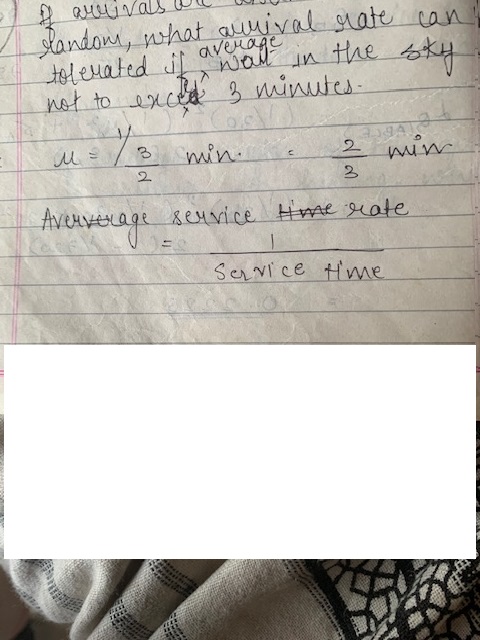 If arrivals are
random, what arrival rate can
tolerated if average wait in the sky
not to exceed 3 minutes.
μ = 1/ 3/2 min. = 2/3 min
Avververage service time rate
= 1 / Service time